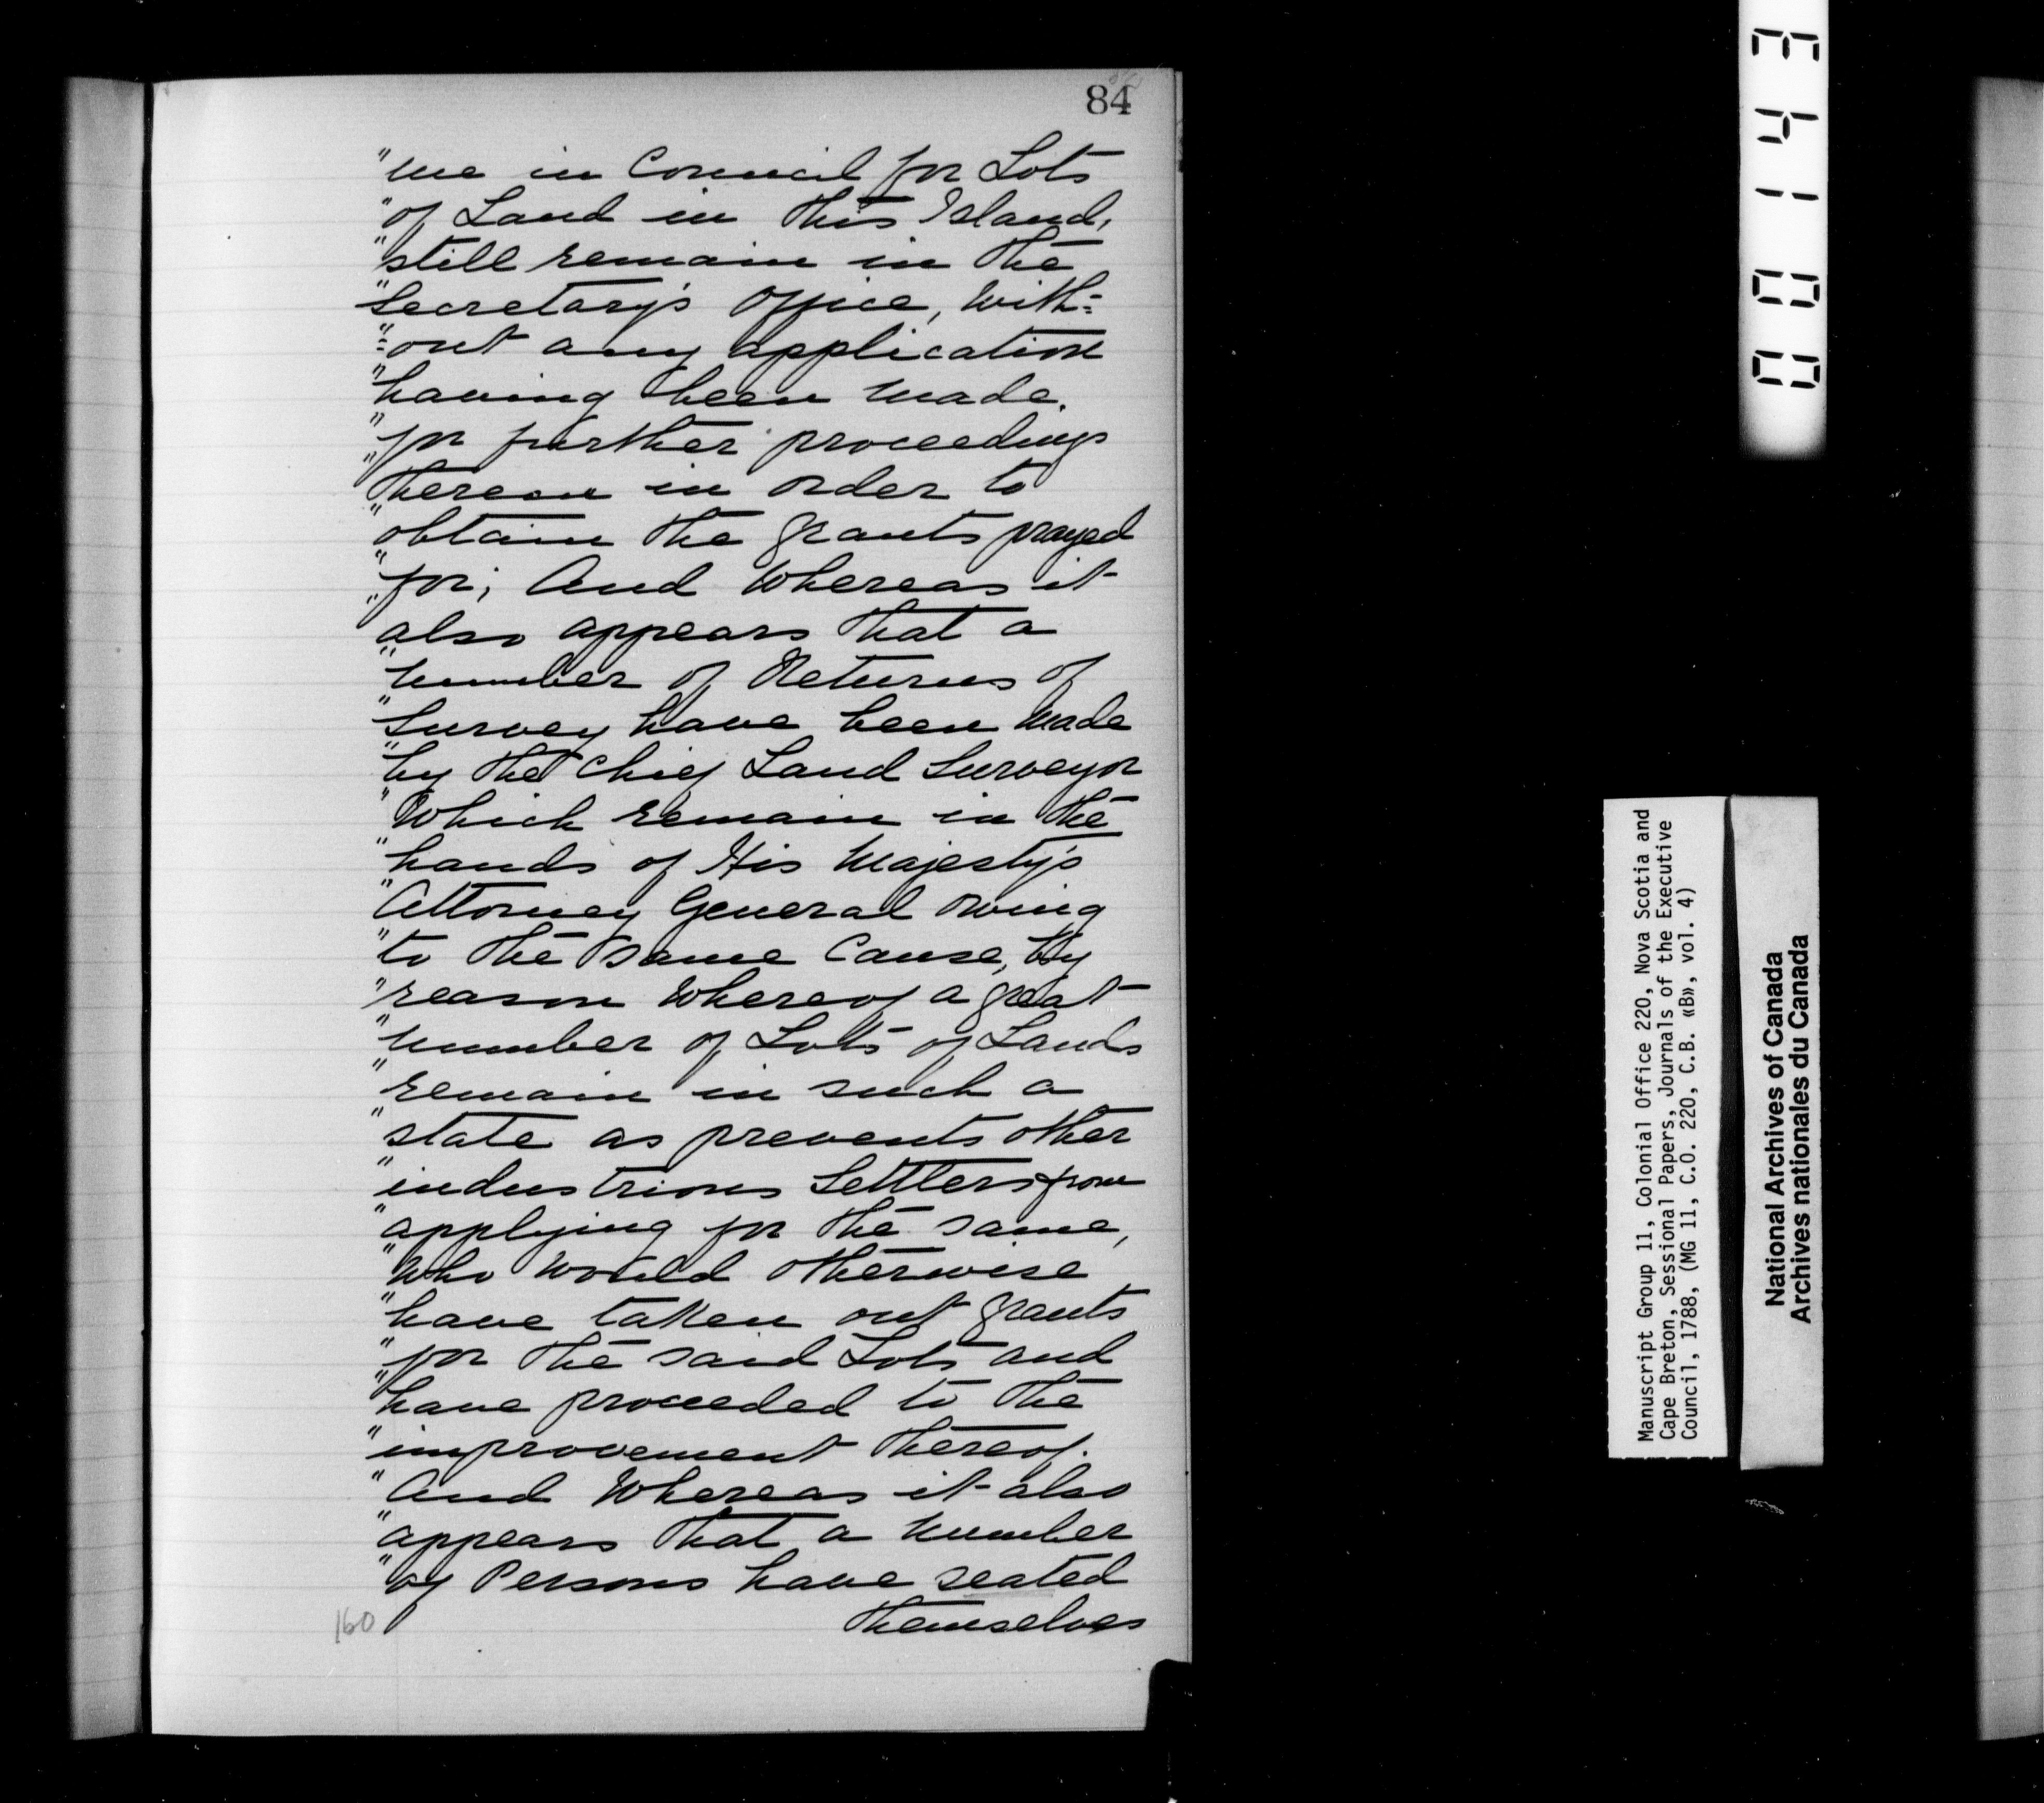 84
"me in Council for Lots
"of Land in this Island,
"still remain in the
"Secretary's Office, With=
"=out any application
"having been made.
"for further proceedings
"thereon in order to
"obtain the grants prayed
"for; And Whereas it
"also appears that a
"number of Returns of
"Survey have been made
"by the Chief Land Surveyor
"Which remain in the
"hands of His Majesty's
"Attorney General owing
"to the same Cause, by
"reason Whereof a great
"number of Lots of Lands
"remain in such a
"state as prevents other
"industrious Settlers from
"applying for the same,
"Who Would otherwise
"have taken out grants
"for the said Lots and
"have proceeded to the
"improvement thereof.
"And Whereas it also
"appears that a number
"of Persons have seated
themselves
160
0 0 1 4 3
Manuscript Group 11, Colonial Office 220, Nova Scotia and
Cape Breton, Sessional Papers, Journals of the Executive
Council, 1788, (MG 11, C.O. 220, C.B. «B», vol. 4)
National Archives of Canada
Archives nationales du Canada